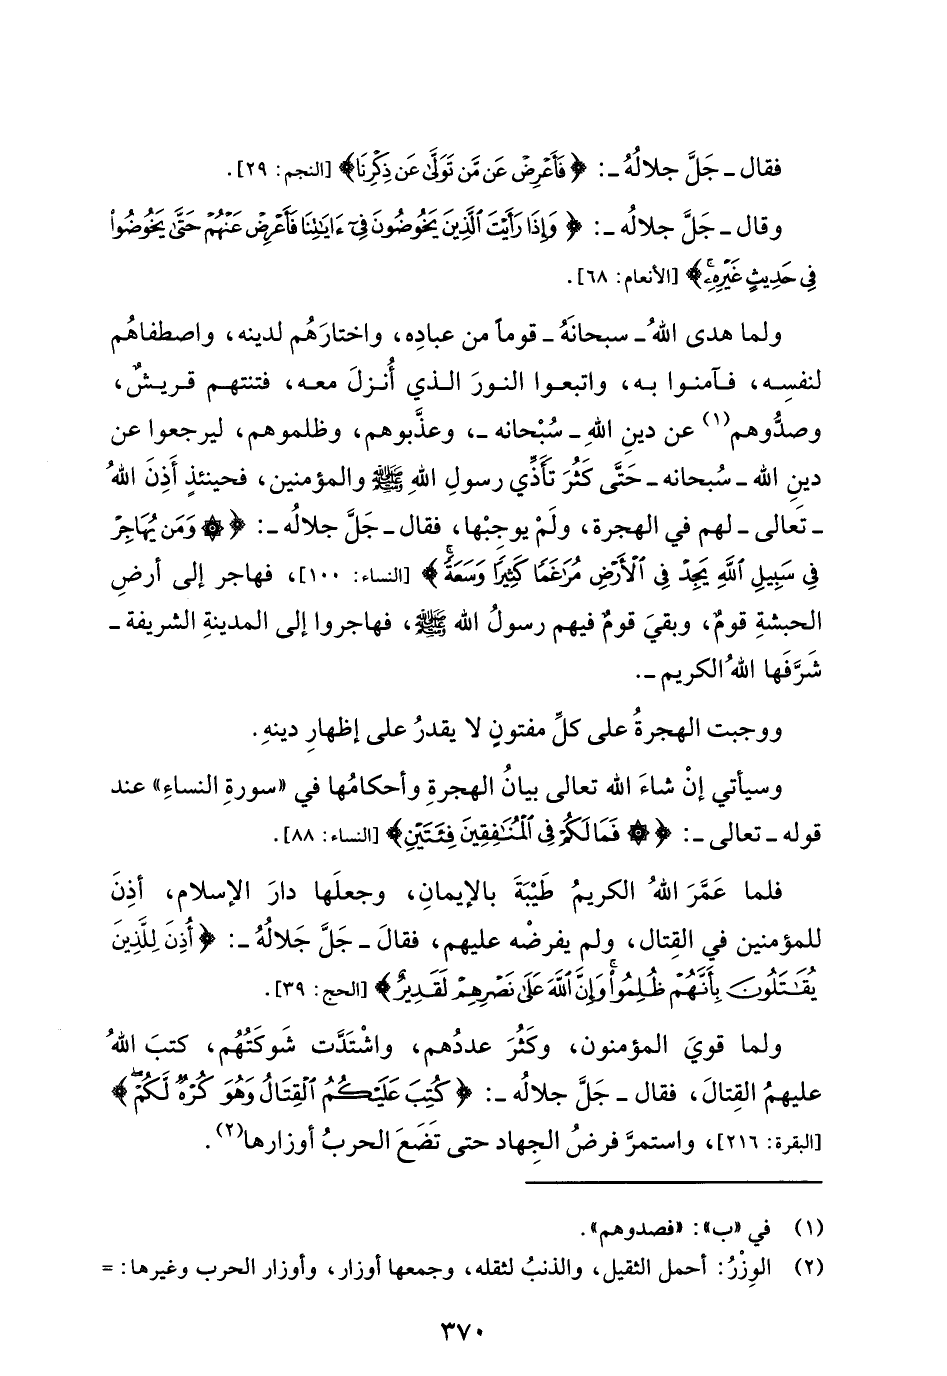 فقال ـ جَلَّ جلالُهُ ـ: ﴿فَأَعْرِضْ عَن مَّن تَوَلَّىٰ عَن ذِكْرِنَا﴾ [النجم: ٢٩].
وقال ـ جَلَّ جلاله ـ: ﴿وَإِذَا رَأَيْتَ ٱلَّذِينَ يَخُوضُونَ فِىٓ ءَايَٰتِنَا فَأَعْرِضْ عَنْهُمْ حَتَّىٰ يَخُوضُوا۟
فِى حَدِيثٍ غَيْرِهِۦۚ﴾ [الأنعام: ٦٨].
ولما هدى اللهُ ـ سبحانَهُ ـ قوماً من عبادِه، واختارَهُم لدينه، واصطفاهُم
لنفسِه، فآمنوا به، واتبعوا النورَ الذي أُنزلَ معه، فتنتهم قريشٌ،
وصدُّوهم(١) عن دينِ اللهِ ـ سُبْحانه ـ، وعذَّبوهم، وظلموهم، ليرجعوا عن
دينِ الله ـ سُبحانه ـ حَتَّى كَثُرَ تَأَذِّي رسولِ اللهِ ﷺ والمؤمنين، فحينئذٍ أَذِنَ اللهُ
ـ تَعالى ـ لهم في الهجرة، ولَمْ يوجِبْها، فقال ـ جَلَّ جلالُه ـ: ﴿۞ وَمَن يُهَاجِرْ
فِى سَبِيلِ ٱللَّهِ يَجِدْ فِى ٱلْأَرْضِ مُرَٰغَمًا كَثِيرًا وَسَعَةًۚ﴾ [النساء: ١٠٠]، فهاجر إلى أرضِ
الحبشةِ قومٌ، وبقيَ قومٌ فيهم رسولُ الله ﷺ، فهاجروا إلى المدينةِ الشريفة ـ
شَرَّفَها اللهُ الكريم ـ.
ووجبت الهجرةُ على كلِّ مفتونٍ لا يقدرُ على إظهارِ دينهِ.
وسيأتي إنْ شاءَ الله تعالى بيانُ الهجرةِ وأحكامُها في «سورةِ النساءِ» عند
قوله ـ تعالى ـ: ﴿۞ فَمَا لَكُمْ فِى ٱلْمُنَٰفِقِينَ فِئَتَيْنِ﴾ [النساء: ٨٨].
فلما عَمَّرَ اللهُ الكريمُ طَيْبَةَ بالإيمانِ، وجعلَها دارَ الإسلام، أذِنَ
للمؤمنين في القِتال، ولم يفرضْه عليهم، فقالَ ـ جَلَّ جَلالُهُ ـ: ﴿أُذِنَ لِلَّذِينَ
يُقَٰتَلُونَ بِأَنَّهُمْ ظُلِمُوا۟ۚ وَإِنَّ ٱللَّهَ عَلَىٰ نَصْرِهِمْ لَقَدِيرٌ﴾ [الحج: ٣٩].
ولما قويَ المؤمنون، وكَثُرَ عددُهم، واشْتَدَّت شَوكَتُهُم، كتبَ اللهُ
عليهمُ القِتالَ، فقال ـ جَلَّ جلالُه ـ: ﴿كُتِبَ عَلَيْكُمُ ٱلْقِتَالُ وَهُوَ كُرْهٌ لَّكُمْۖ﴾
[البقرة: ٢١٦]، واستمرَّ فرضُ الجِهاد حتى تَضَعَ الحربُ أوزارها(٢).
(١) في «ب»: «فصدوهم».
(٢) الوِزْرُ: أحمل الثقيل، والذنبُ لثقله، وجمعها أوزار، وأوزار الحرب وغيرها: =
٣٧٠